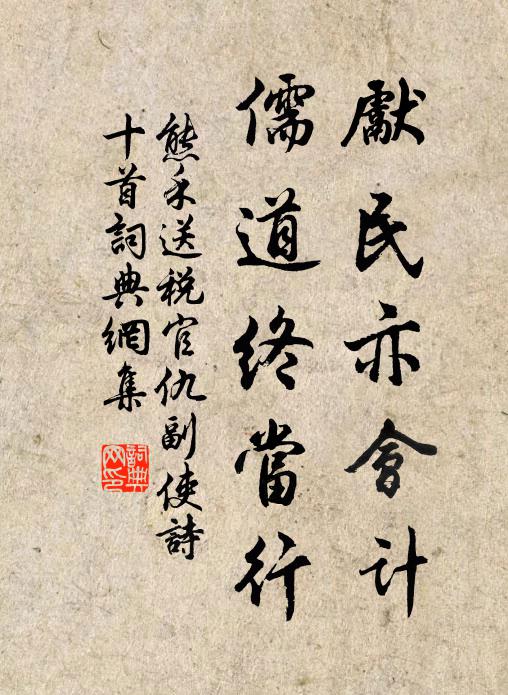 獻民亦會計
儒道終當行
熊禾送稅官仇副使詩
十首詞典網集
詞典网印